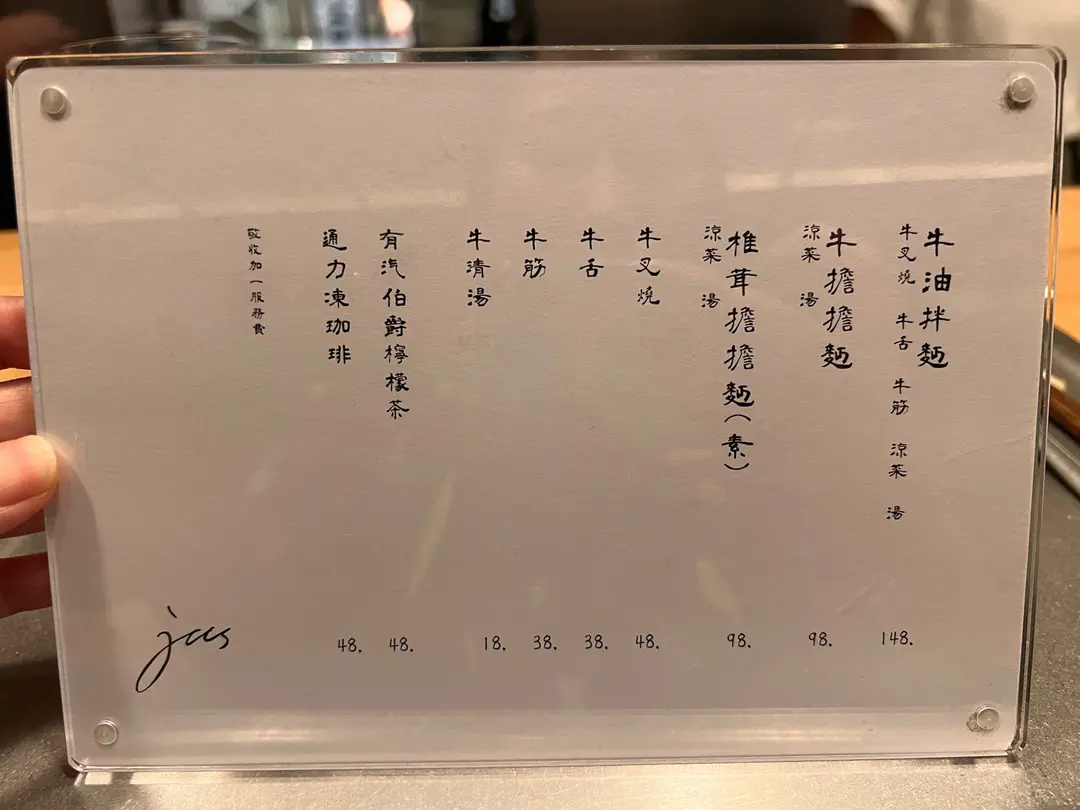 牛油拌麵
牛叉燒 牛舌 牛筋 涼菜 湯
148.
牛擔擔麵
涼菜 湯
98.
椎茸擔擔麵(素)
涼菜 湯
98.
牛叉燒
48.
牛舌
38.
牛筋
38.
牛清湯
18.
有汽伯爵檸檬茶
48.
通力凍珈琲
48.
敬收加一服務費
jas